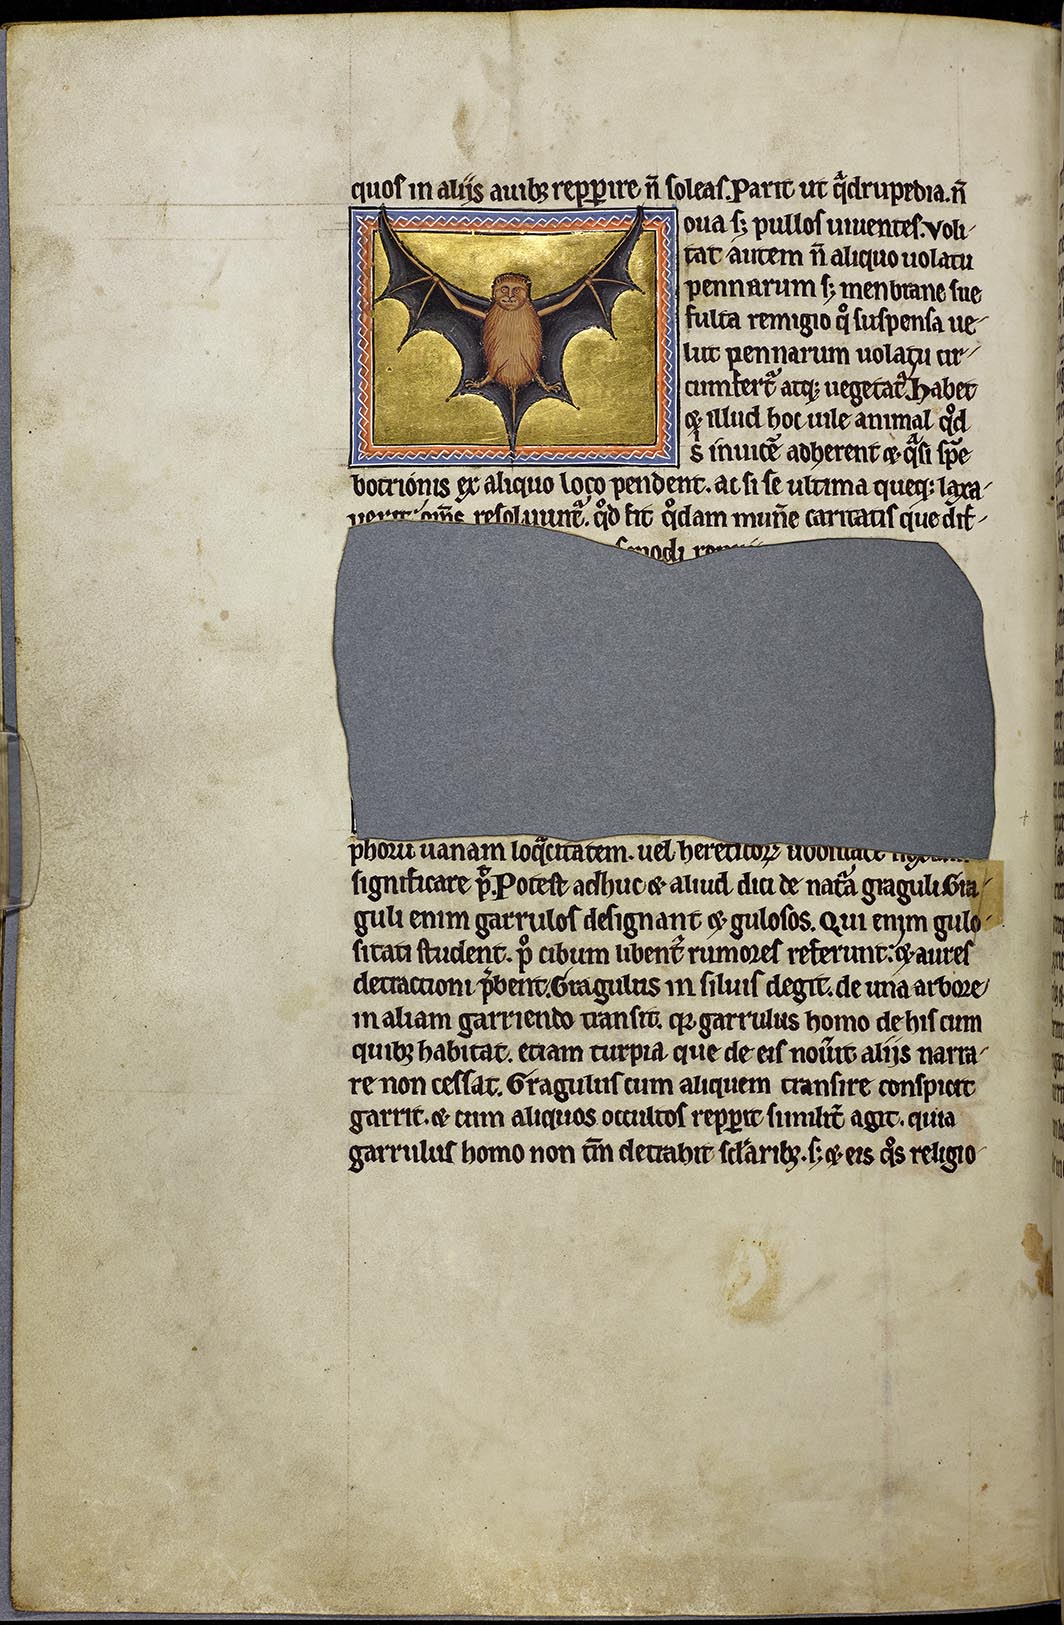 quoſ in aliis auibꝫ repꝑire n̄ ſoleaſ. Parit ut qͣdrupedia. n̄
oua ſꝫ pulloſ uiuenteſ. Voli-
tat autem n̄ aliquo uolatu
pennarum ſꝫ menbrane ſue
fulta remigio qͦ ſuſpenſa ue-
lut pennarum uolatu cir-
cumfertᷓ atqꝫ uegetatᷓ. Habet
⁊ illud hoc uile animal qͦd
s̄ inuicē adherent ⁊ qͣſi ſpē̄
botrionis ex aliquo loco pendent. ac ſi ſe ultima queqꝫ laxa-
uerit om̄s reſoluuntᷓ. qͦd fit qͦdam mun̄e caritatiſ que dif-
phoru uanam loqͣcitatem. uel hereticoꝝ
ſignificare pͣ. Poteſt adhuc ⁊ aliud dici de natᷓa graguli. Gra-
guli enim garruloſ deſignant ⁊ guloſoſ. Qui enim gulo-
ſitati ſtudent. pͦ cibum libentᷓ rumoreſ referunt. ⁊ aureſ
detractioni p̄bent. Gragulus in ſiluiſ degit. de una arbore
in aliam garriendo tranſit. qꝛ garrulus homo de hiſ cum
quibꝫ habitat. etiam turpia que de eiſ nouit aliis narra-
re non ceſſat. Graguluſ cum aliquem tranſire conſpicit
garrit. ⁊ cum aliquoſ occultoſ repꝑit ſimilit̄ agit. quia
garruluſ homo non tm̄ detrahit ſcl̄aribꝫ. ſꝫ ⁊ eis qͦs religio-